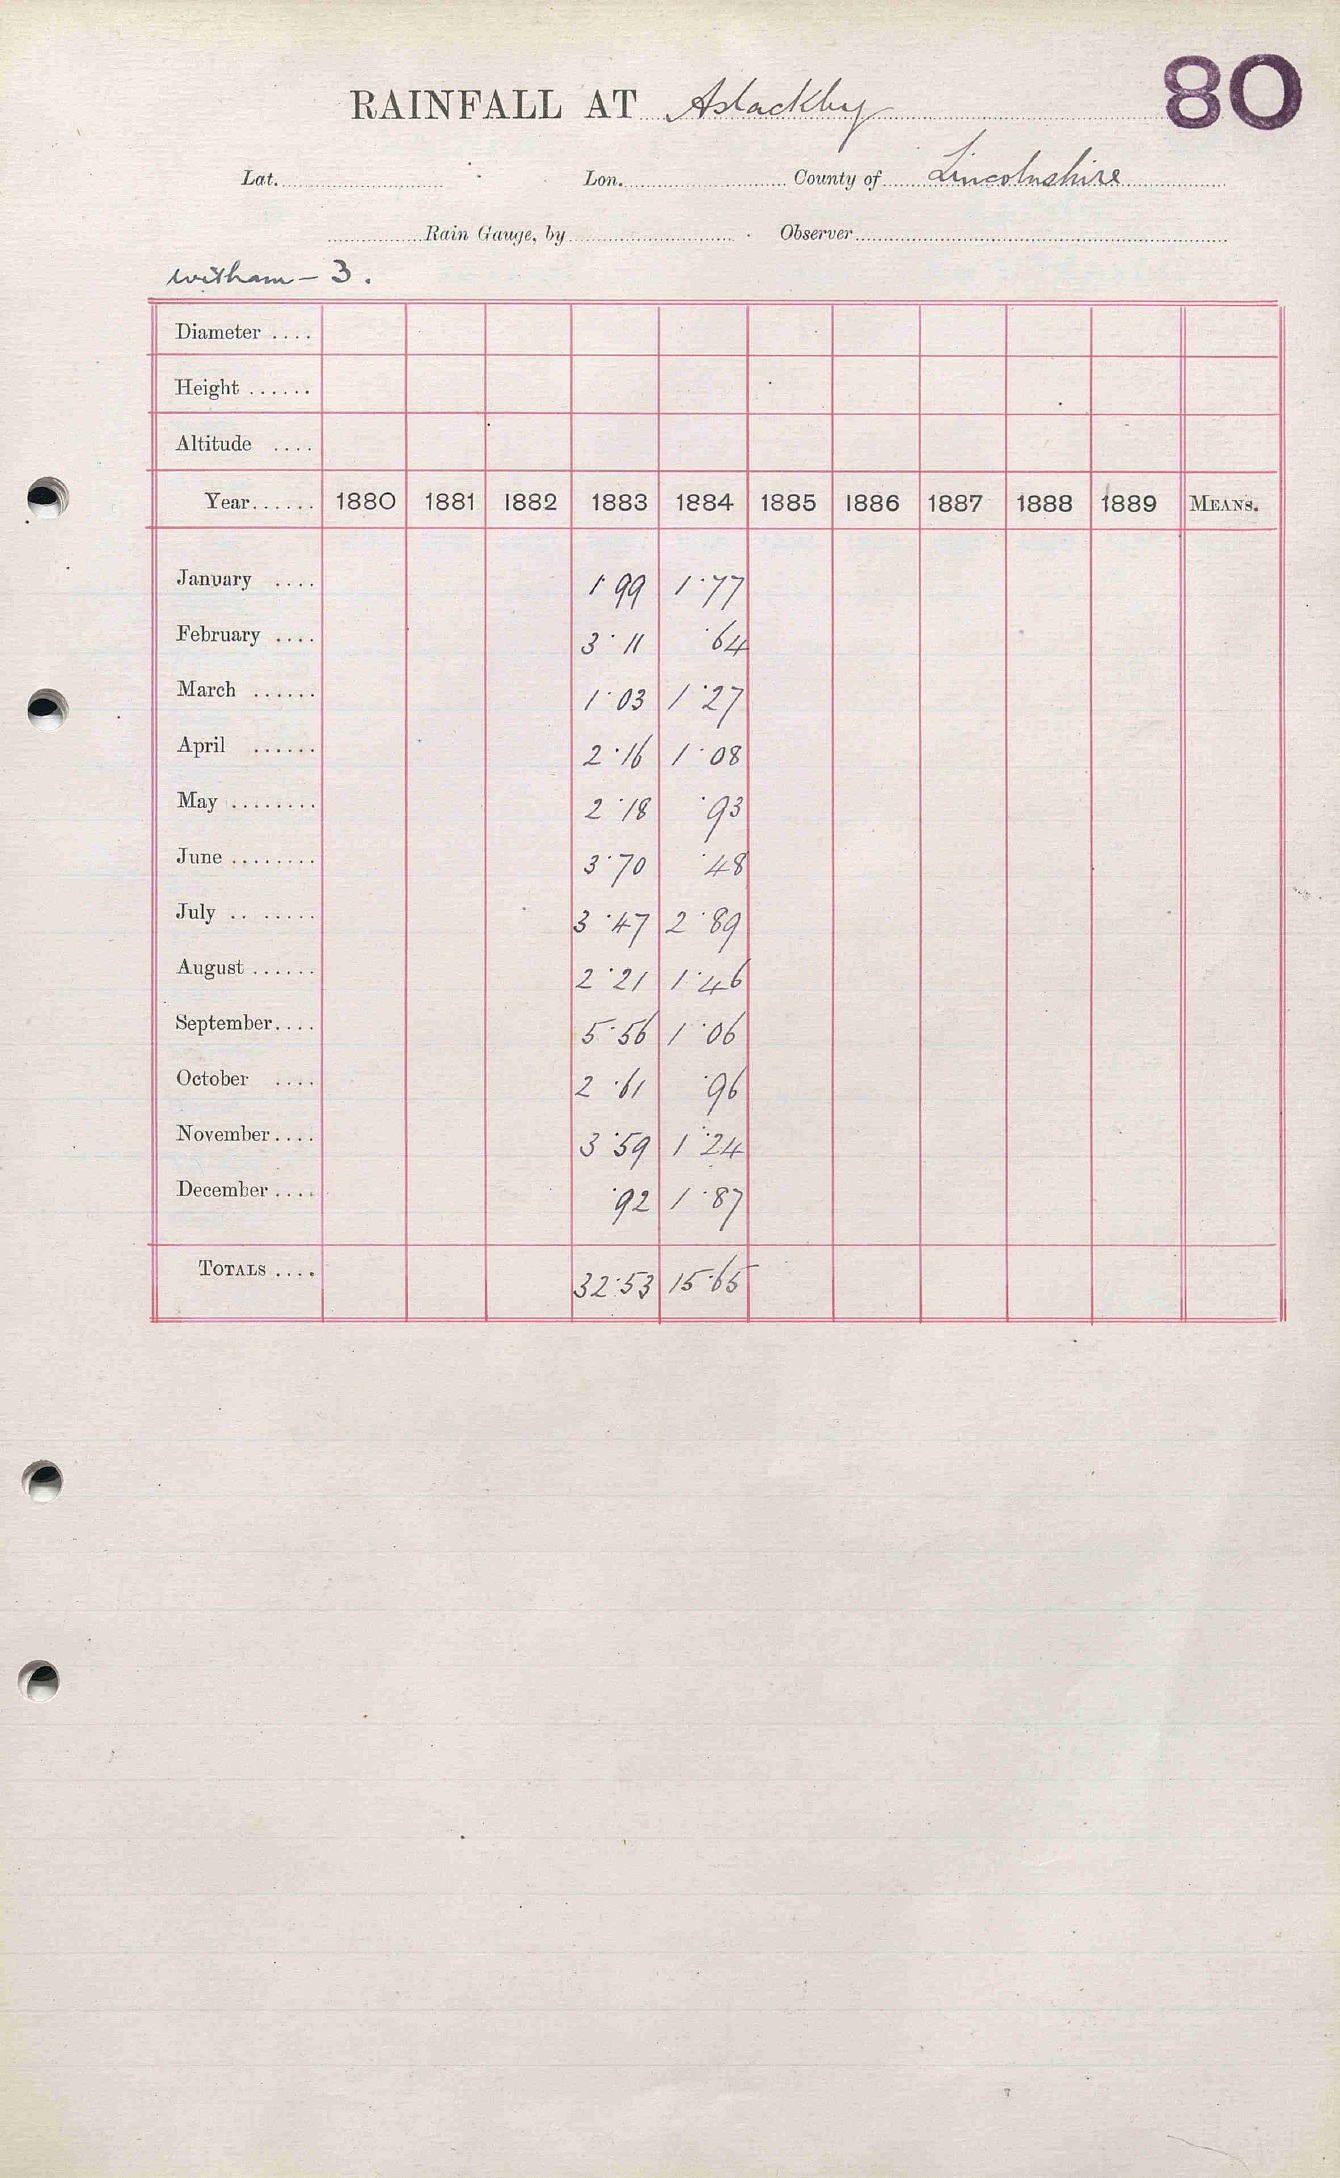 80
RAINFALL AT Aslackby
Lat. Lon. County of Lincolnshire
Rain Gauge, by Observer
Witham - 3.
Diameter ....
Height ......
Altitude ....
Year...... 1880 1881 1882 1883 1884 1885 1886 1887 1888 1889 MEANS.
January .... 1.99 1.77
February .... 3.11 .64
March ...... 1.03 1.27
April ...... 2.16 1.08
May ........ 2.18 .93
June ........ 3.70 .48
July .. ...... 3.47 2.89
August ...... 2.21 1.46
September.... 5.56 1.06
October .... 2.61 .96
November.... 3.59 1.24
December.... .92 1.87
TOTALS .... 32.53 15.65